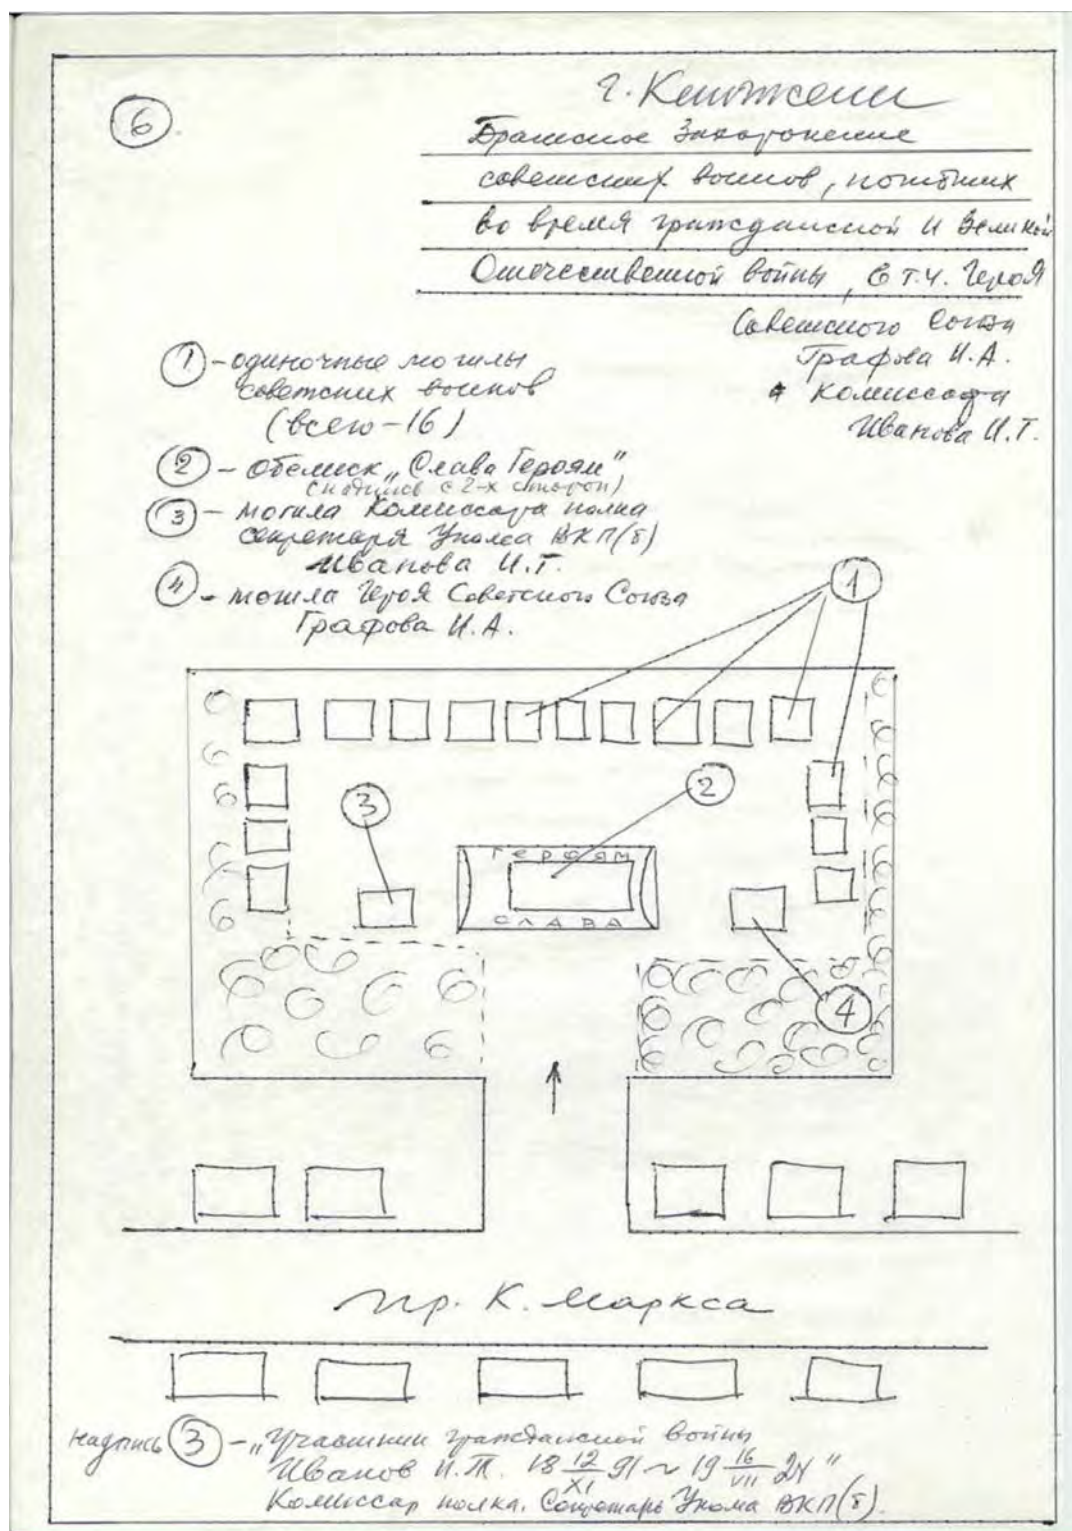 6
г. Кингисепп
Братское Захоронение
советских воинов, погибших
во время гражданской и Великой
Отечественной войны, в т.ч. Героя
Советского Союза
Графова И.А.
и комиссара
Иванова И.Т.
1 - одиночные могилы
советских воинов
(всего-16)
2 - обелиск „Слава Героям"
(надпись с 2-х сторон)
3 - могила Комиссара полка
секретаря Укома ВКП(б)
Иванова И.Т.
4 - могила Героя Советского Союза
Графова И.А.
1
2
3
ГЕРОЯМ
СЛАВА
4
пр. К. Маркса
надпись 3 - „Участник гражданской войны
Иванов И.Т. 18 12/XI 91 ~ 19 16/VII 24"
Комиссар полка. Секретарь Укома ВКП(б).